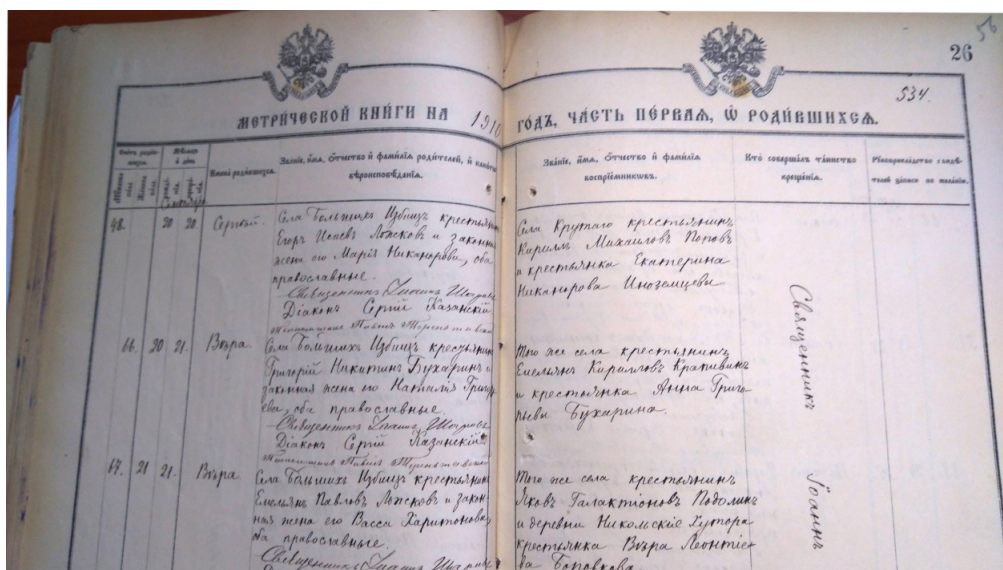 56
26
534.
МЕТРИЧЕСКОЙ КНИГИ НА 1910 ГОДЪ, ЧАСТЬ ПЕРВАЯ, Ѿ РОДИВШИХСЯ.
Счетъ родив-
шихся.
Мѣсяцъ
и день.
Имена родившихся.
Званіе, имя, отчество и фамилія родителей, и какого
вѣроисповѣданія.
Званіе, имя, отчество и фамилія
воспріемниковъ.
Кто совершалъ таинство
крещенія.
Рукоприкладство свидѣ-
телей записи по желанію.
48. 20 20 Сергій.
Села Большихъ Избищъ крестьянинъ
Егоръ Исаевъ и законная
жена его Марія Никанорова, оба
православные.
Священникъ Іоаннъ
Діаконъ Сергій Казанскій
Села Крутаго крестьянинъ
Кириллъ Михаиловъ Поповъ
и крестьянка Екатерина
Никанорова Иноземцева
66. 20 21. Вѣра.
Села Большихъ Избищъ крестьянинъ
Григорій Никитинъ Бухаринъ и
законная жена его Наталія Григорь
ева, оба православные.
Священникъ Іоаннъ
Діаконъ Сергій Казанскій
Того же села крестьянинъ
Емельянъ Кирилловъ Крапивинъ
и крестьянка Анна Григо
рьева Бухарина.
67. 21 21. Вѣра
Села Большихъ Избищъ крестьянинъ
Емельянъ Павловъ и закон-
ная жена его Васса Харитонова,
оба православные.
Священникъ Іоаннъ
Того же села крестьянинъ
Яковъ Галактіоновъ Подолинъ
и деревни Никольскіе Хутора
крестьянка Вѣра Леонтіе-
ва Боровкова
Священникъ Іоаннъ